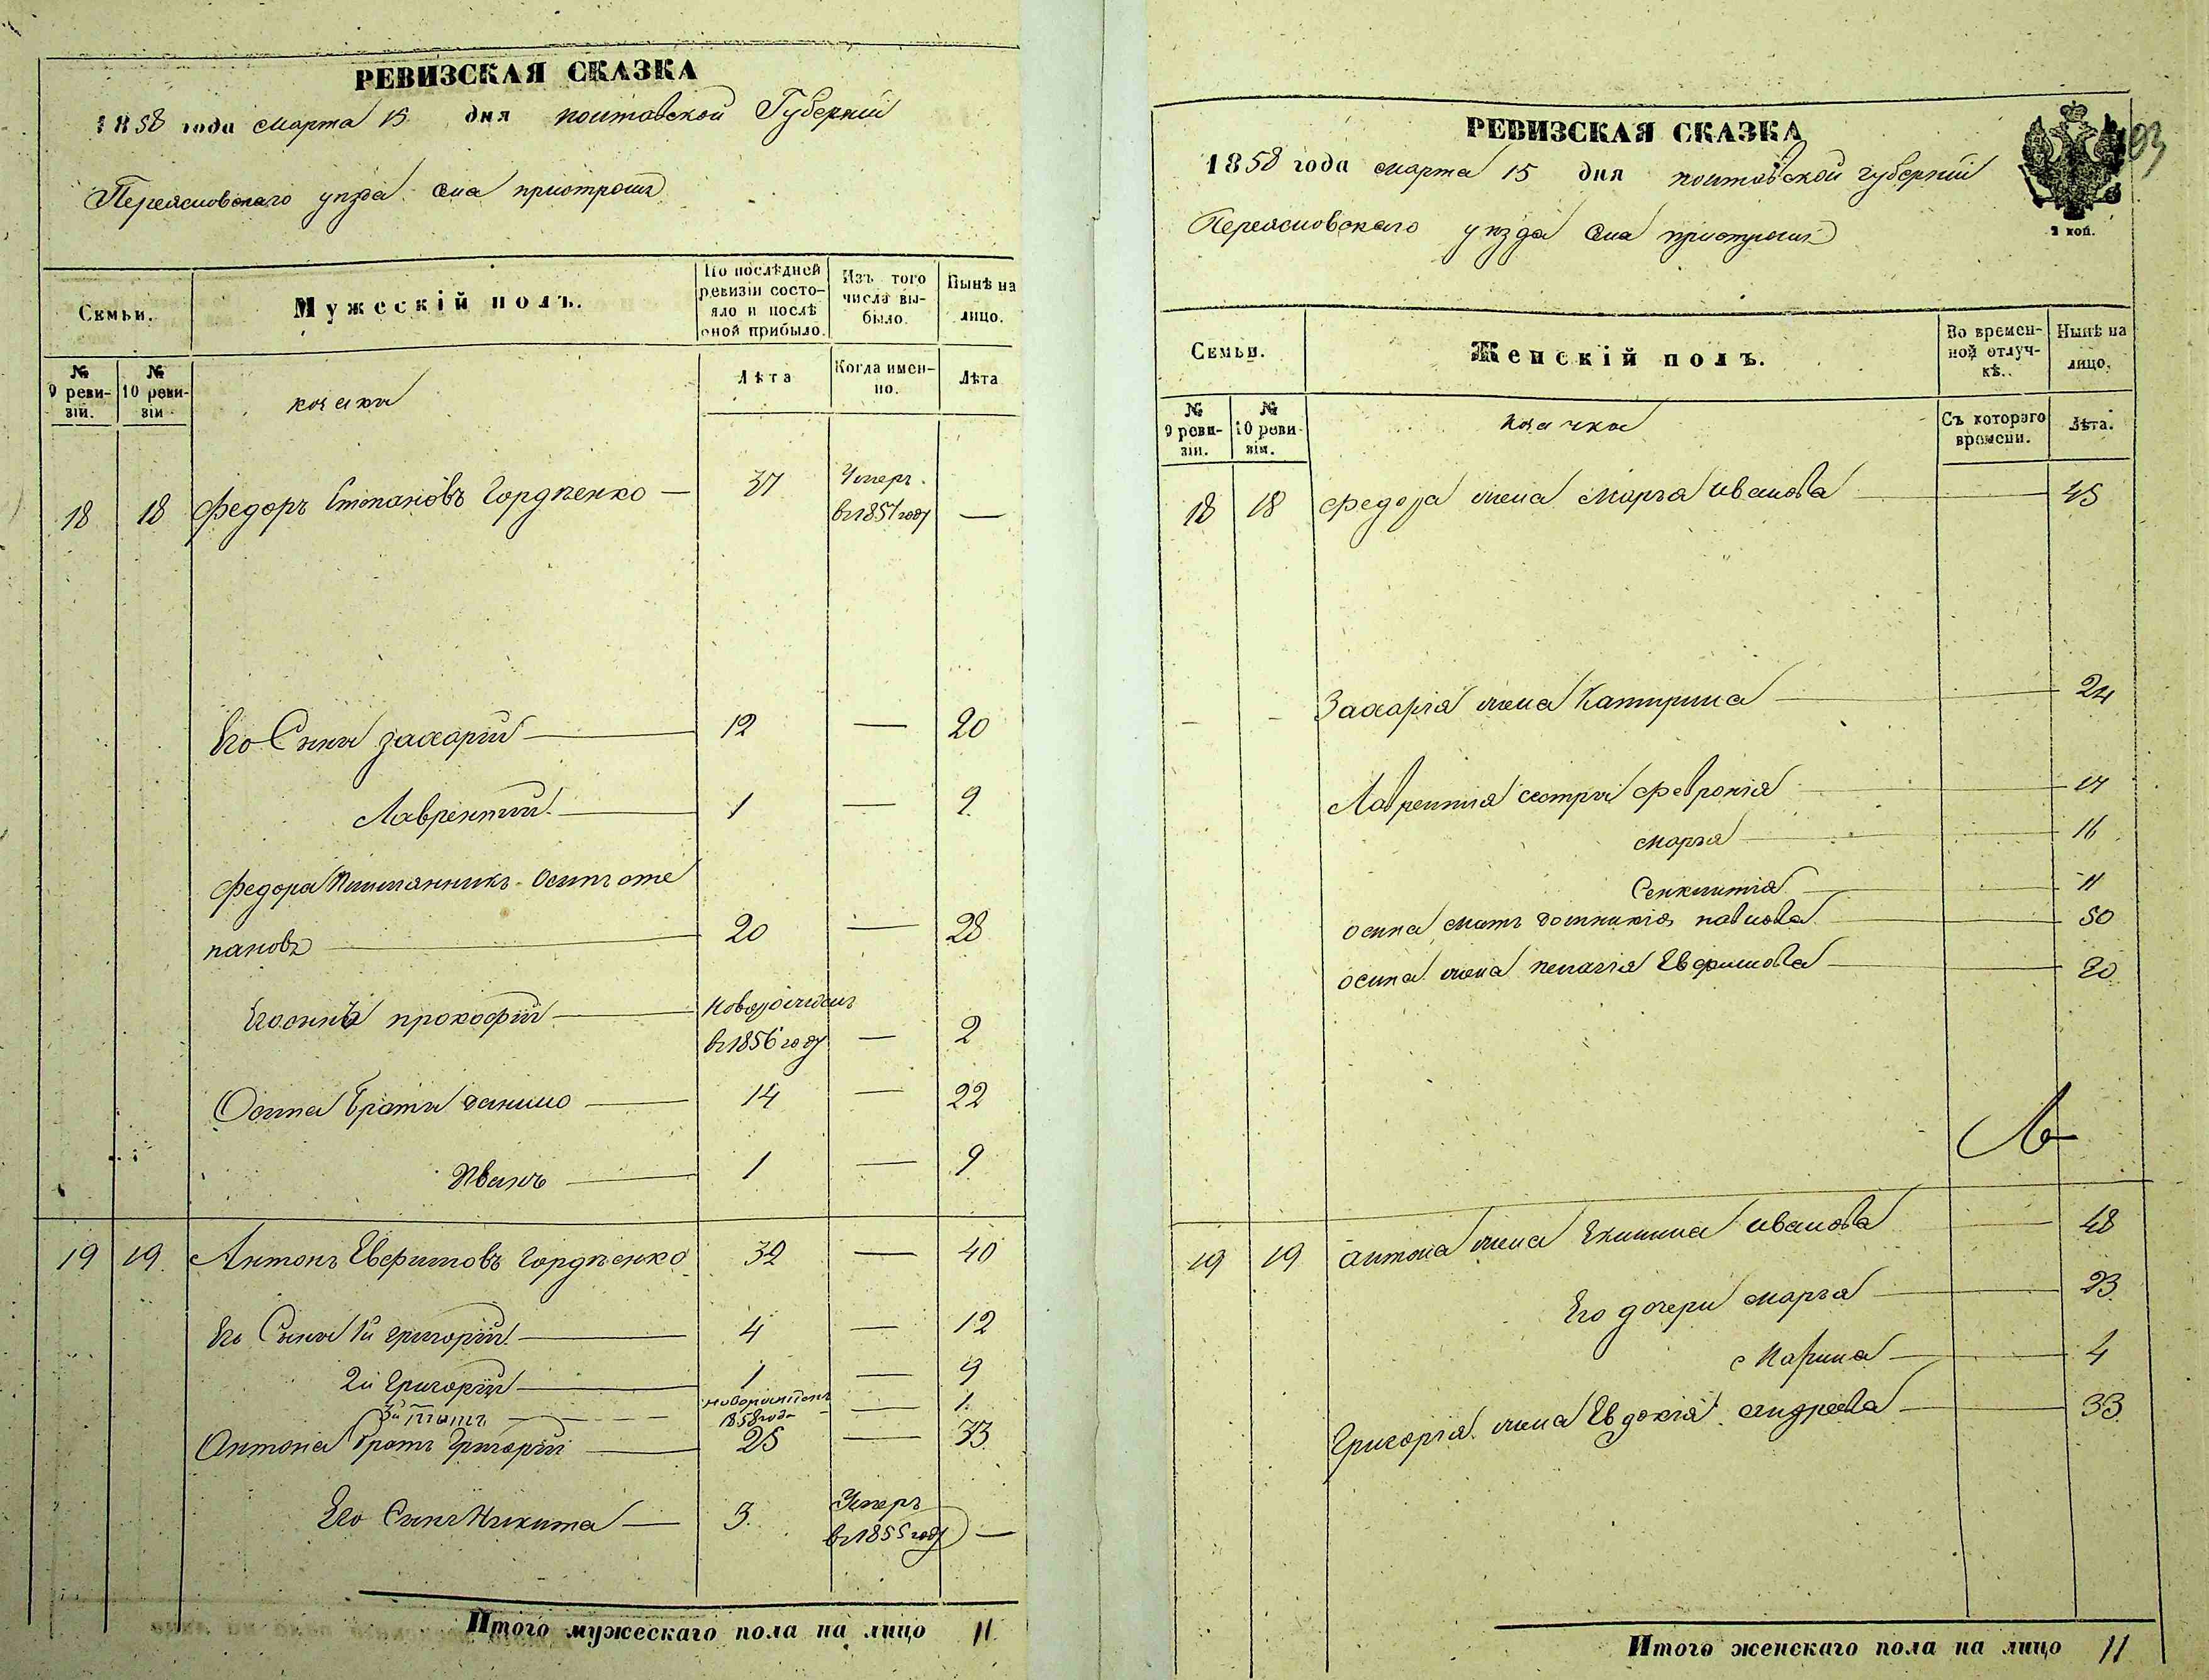 РЕВИЗСКАЯ СКАЗКА
1858 года марта 15 дня полтавской Губерніи
Переясловскаго уѣзда села пристромъ
Семьи.
Мужескій полъ.
По послѣдней ревизіи состояло и послѣ оной прибыло.
Изъ того числа выбыло.
Нынѣ на лицо.
№ 9 ревизіи.
№ 10 ревизіи
козаки
Лѣта
Когда именно.
Лѣта
18 18 Федоръ Степановъ Гордѣенко — 37 Умеръ в 1851 году —
Его Сыны захарій — 12 — 20
Лаврентий — 1 — 9
Федора Племянникъ Осипъ сте
пановъ — 20 — 28
Его сынъ прокофій — Новорожденъ в 1856 году — 2
Осипа браты данило — 14 — 22
Иванъ — 1 — 9
19 19 Антонъ Евфимовъ Гордѣенко 32 — 40
Его Сыны 1й григорій — 4 — 12
2й Григорій — 1 — 9
3й — новорожденъ 1858 года — 1
Антона братъ Григорій — 25 — 33
Его Сынъ Никита — 3. Умеръ в 1855 году —
Итого мужескаго пола на лицо 11
РЕВИЗСКАЯ СКАЗКА
1858 года марта 15 дня полтавской губерніи
Переясловскаго уѣзда села пристромъ
2 коп.
Семьи.
Женскій полъ.
Во временной отлучкѣ.
Нынѣ на лицо.
№ 9 ревизіи.
№ 10 ревизіи.
козачки
Съ котораго времени.
Лѣта.
18 18 Федора жена марѳа иванова — 45
Захарія жена Катирина — 24
Лаврентія сестры Февронія — 17
марѳа — 16
Сенклитія — 11
осипа мать домникія павлова — 50
осипа жена пелагія Евфимова — 20
19 19 антона жена Екилина иванова — 48
Его дочери марѳа — 23
Марина — 4
Григорія жена Евдокія андреева — 33
Итого женскаго пола на лицо 11